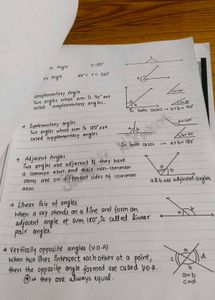 Angle
L=180°
Ex Angle 180° < x < 360°
Complementary Angle
Two angles whose sum is 90° are
called complementary angles.
In both cases → a+b= 90°
→ Supplementary Angles
Two angles whose sum is 180° are
called supplementary angles
In both cases → a+b= 180°
→ Adjacent Angles
Two angles are adjacent if they have
a common arm and their non-common
arms are on different sides of common
arm.
a b
a & b are adjacent angles.
→ Linear Pair of angles
When a ray stands on a line and form an
adjacent angle of sum 180°, is called linear
pair angles.
a b
→ Vertically opposite angles (V.O.A)
When two lines intersect each other at a point,
then the opposite angle formed are called V.O.A.
→ they are always equal.
c
a b
d
a=b
c=d